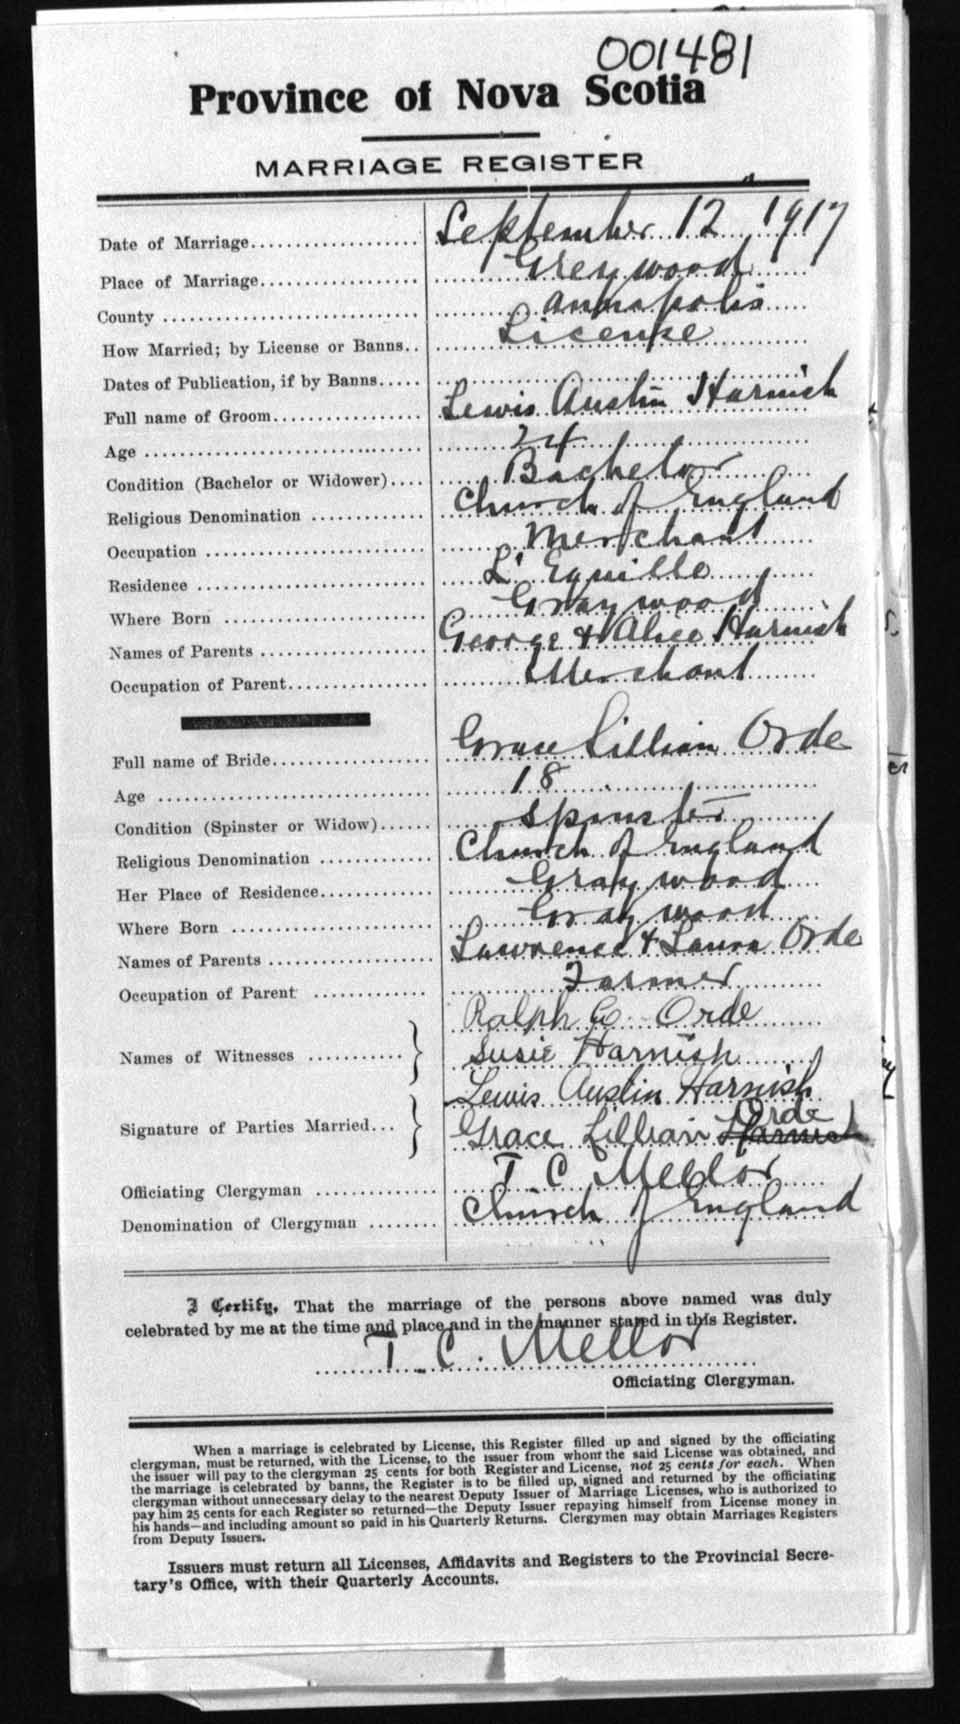 001481
Province of Nova Scotia
MARRIAGE REGISTER
Date of Marriage.................... September 12, 1917
Place of Marriage.................. Greywood
County .............................. Annapolis
How Married; by License or Banns.. License
Dates of Publication, if by Banns.....
Full name of Groom................. Lewis Austin Harnish
Age ................................ 24
Condition (Bachelor or Widower).... Bachelor
Religious Denomination ............. Church of England
Occupation ......................... Merchant
Residence .......................... L'Equille
Where Born ........................ Graywood
Names of Parents ................... George & Alice Harnish
Occupation of Parent............... Merchant
Full name of Bride.................. Grace Lillian Orde
Age ............................... 18
Condition (Spinster or Widow)...... Spinster
Religious Denomination ............ Church of England
Her Place of Residence............. Graywood
Where Born ....................... Graywood
Names of Parents ................... Lawrence & Laura Orde
Occupation of Parent .............. Farmer
Ralph E Orde
Names of Witnesses .......... } Susie Harnish
Lewis Austin Harnish
Signature of Parties Married... } Grace Lillian Harnish Orde
Officiating Clergyman .............. T. C. Mellor
Denomination of Clergyman ........ Church of England
I Certify, That the marriage of the persons above named was duly
celebrated by me at the time and place and in the manner stated in this Register.
T. C. Mellor
Officiating Clergyman.
When a marriage is celebrated by License, this Register filled up and signed by the officiating
clergyman, must be returned, with the License, to the issuer from whom the said License was obtained, and
the issuer will pay to the clergyman 25 cents for both Register and License, not 25 cents for each. When
the marriage is celebrated by banns, the Register is to be filled up, signed and returned by the officiating
clergyman without unnecessary delay to the nearest Deputy Issuer of Marriage Licenses, who is authorized to
pay him 25 cents for each Register so returned—the Deputy Issuer repaying himself from License money in
his hands—and including amount so paid in his Quarterly Returns. Clergymen may obtain Marriages Registers
from Deputy Issuers.
Issuers must return all Licenses, Affidavits and Registers to the Provincial Secre-
tary's Office, with their Quarterly Accounts.